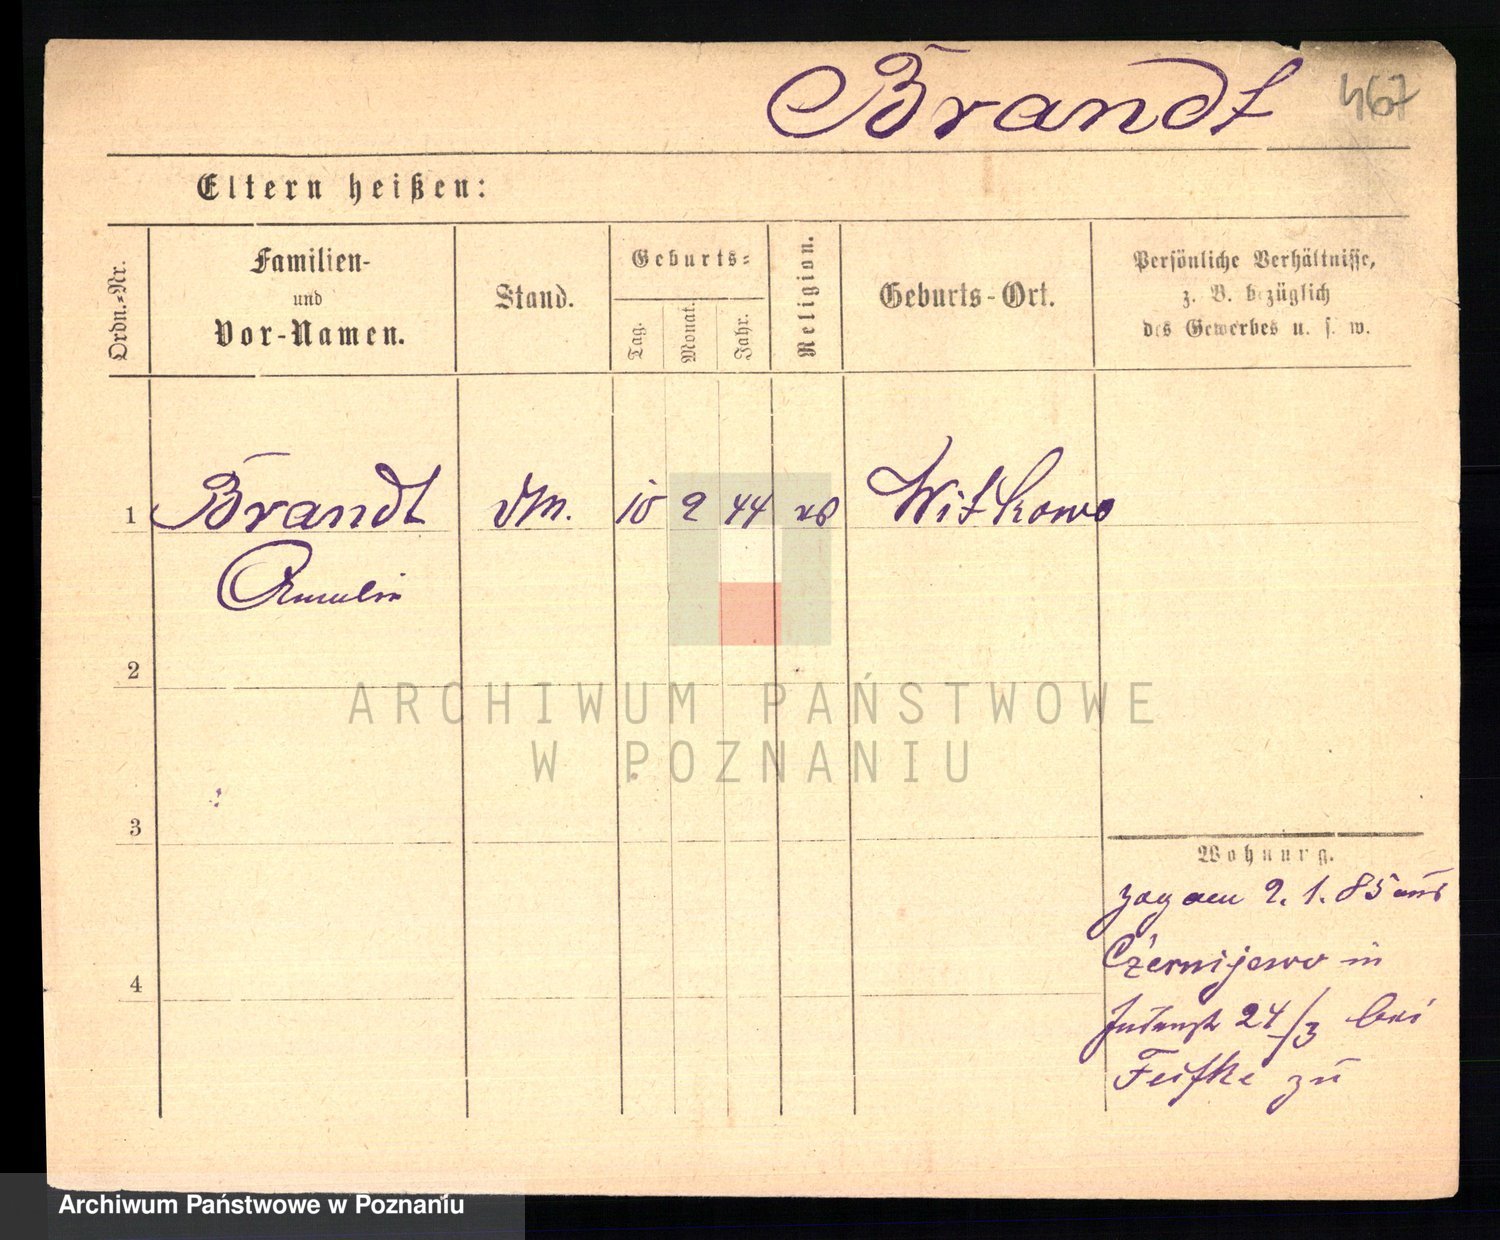 Brandt 467
Eltern heißen:
Ordn.-Nr.
Familien-
und
Vor-Namen.
Stand.
Geburts-
Tag.
Monat.
Jahr.
Religion.
Geburts-Ort.
Persönliche Verhältnisse,
z. B. bezüglich
des Gewerbes u. s. w.
1 Brandt 10 2 44 Witkowo
Amalie
2
3
4
Wohnung.
zog am 2. 1. 85 aus
Czernijewo in
24/3 bei
zu
ARCHIWUM PAŃSTWOWE
W POZNANIU
Archiwum Państwowe w Poznaniu